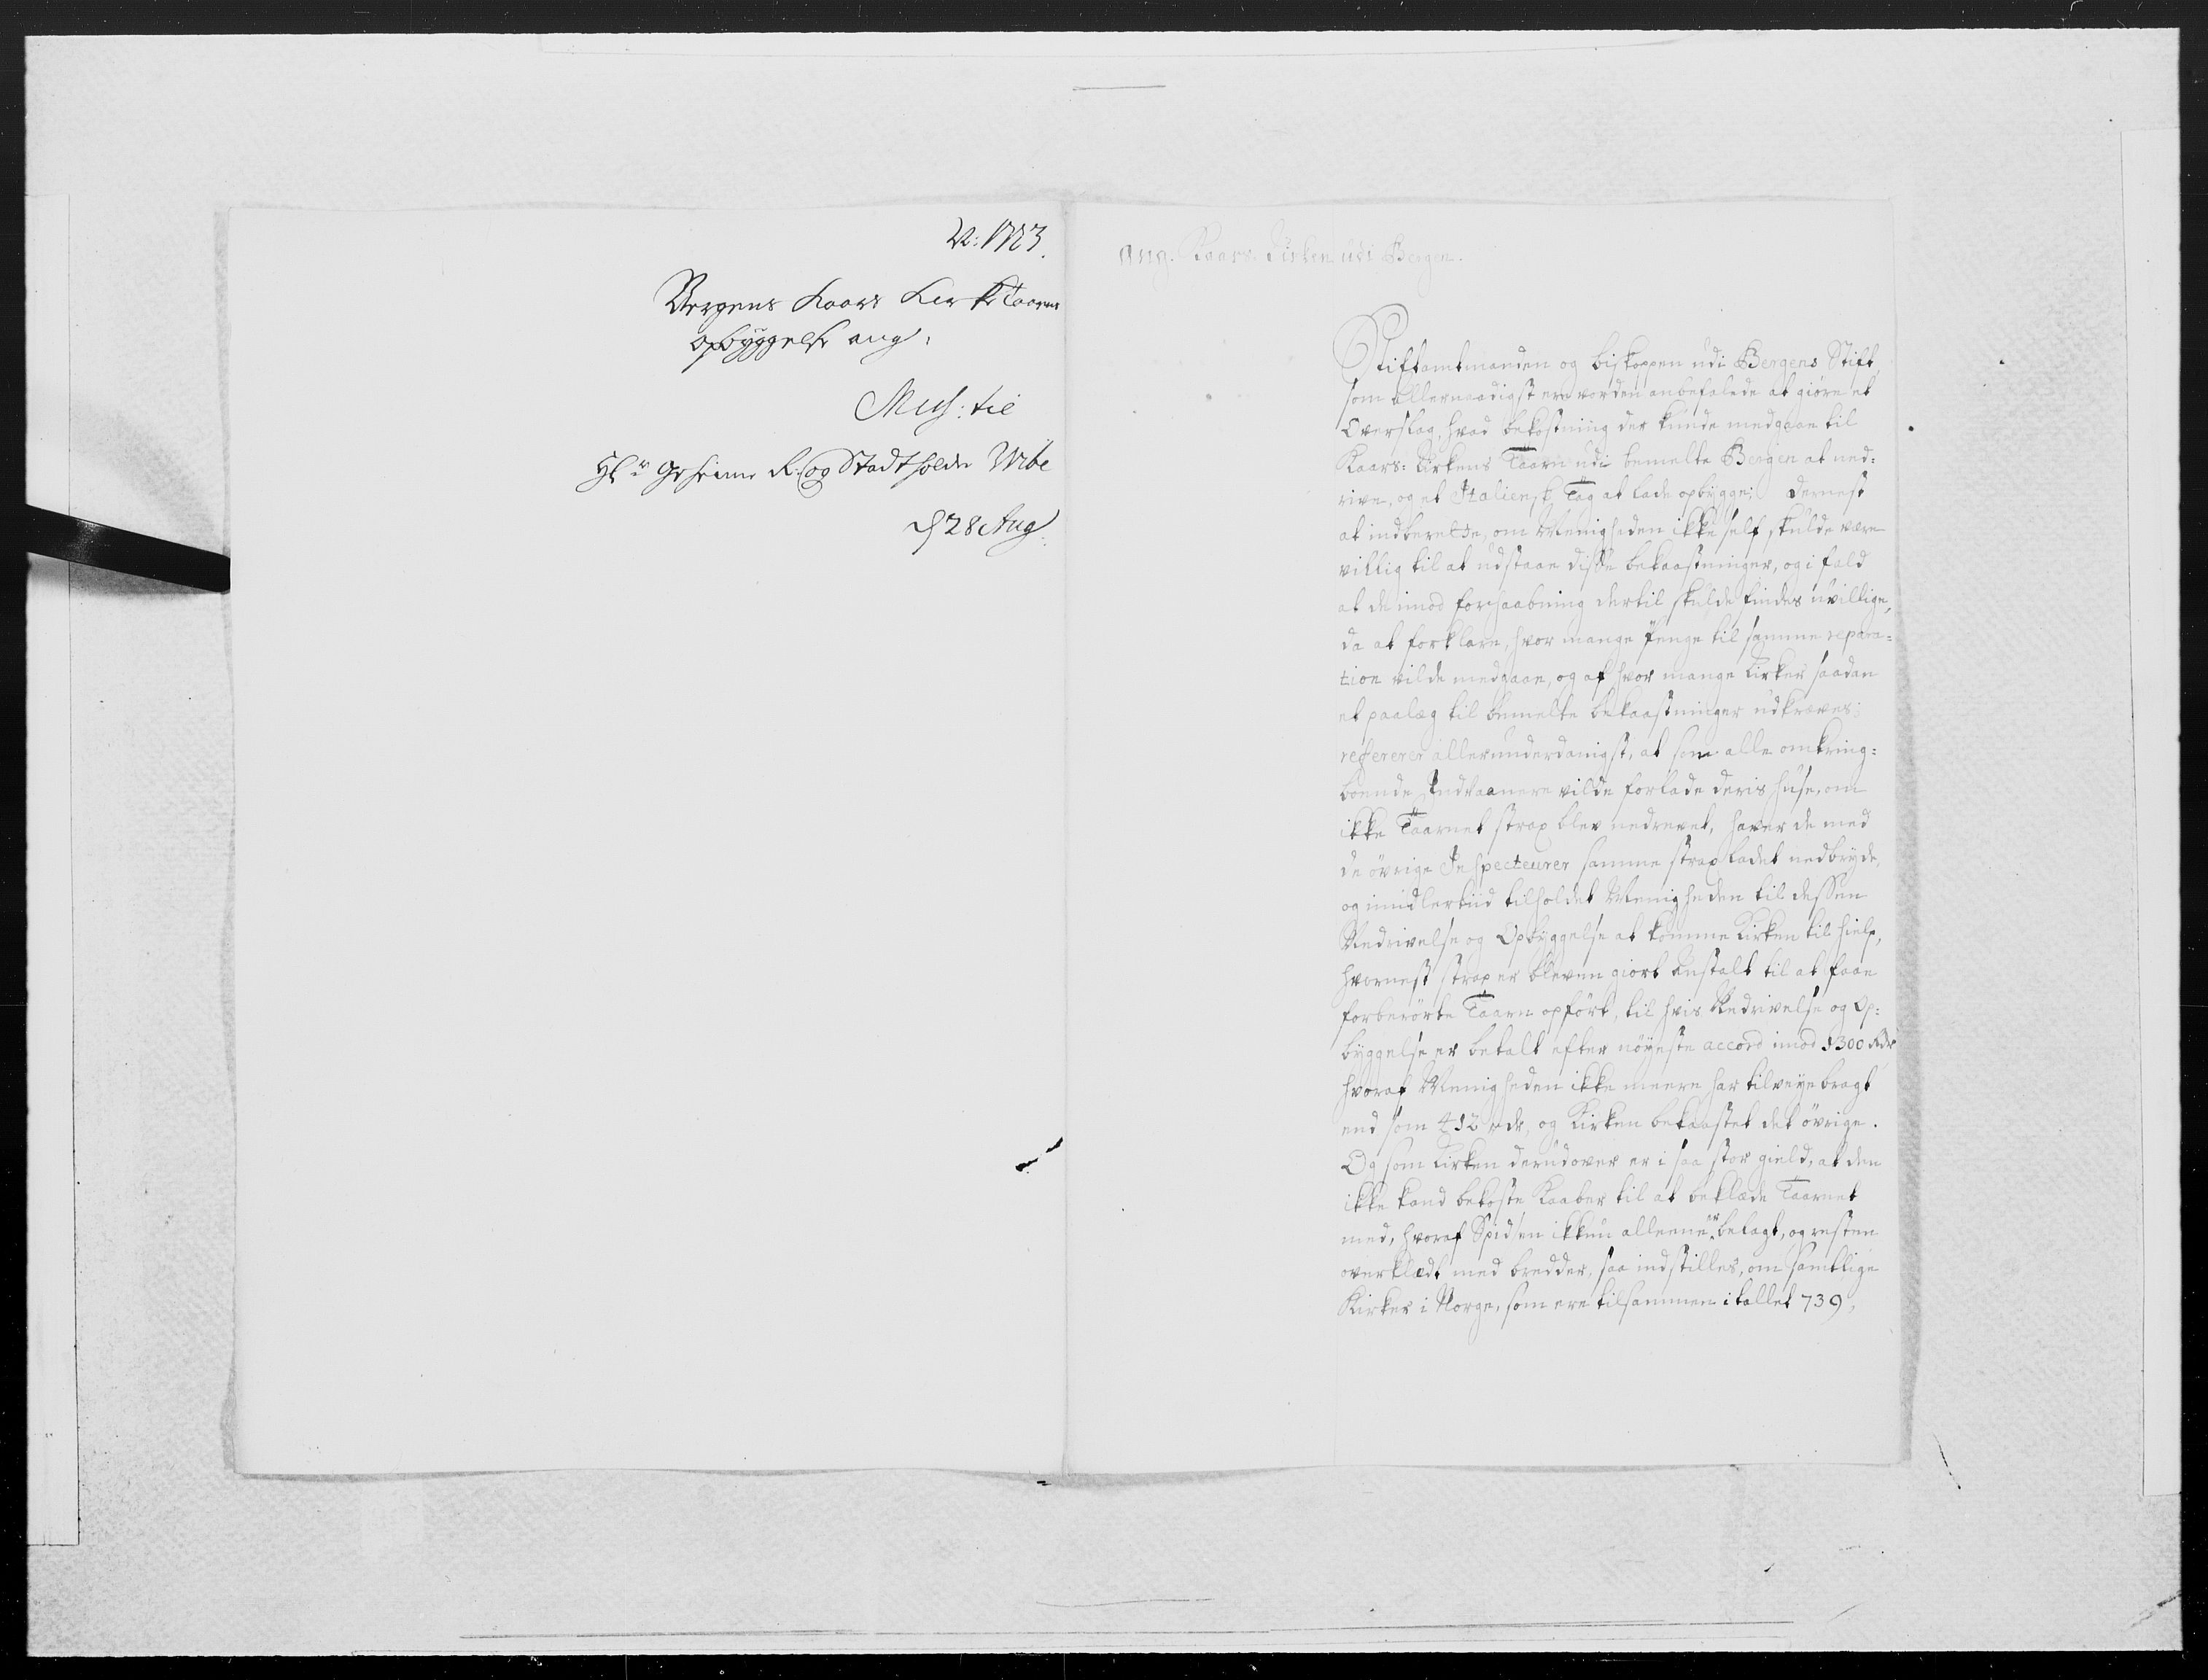 N: 1723.
Bergens Kaars Kirke Taarns
opbyggelse ang.
Miss: til
Hr Geheime R. og Stadtholder Vibe
d 28 Aug
ang. Kaars-Kirken udi Bergen.
Stiftamtmanden og biskoppen udi Bergens Stift,
som allernaadigst ere vorden anbefalede at giøre et
Overslag, hvad bekostning der kunde medgaae til
Kaars-Kirkens Taarn udi bemelte Bergen at ned-
rive, og et Italiensk Tag at lade opbygge; dernest
at indberette, om Menigheden ikke self skulde være
villig til at udstaae disse bekaastninger, og i fald
at de imod forhaabning dertil skulde findes uvillige,
da at forklare, hvor mange Penge til samme repara-
tion vilde medgaae, og af hvor mange Kirker saadan
et paalæg til bemelte bekaastninger udkræves;
refererer allerunderdanigst, at som alle omkring-
boende Indvaanere vilde forlade deris huse, om
ikke Taarnet strax blev nedrevet, haver de med
de övrige Inspecteurer samme strax ladet nedbryde,
og imidlertiid tilholdet Menigheden til dessen
Nedrivelse og Opbyggelse at komme Kirken til hielp,
hvornest strax er bleven giort Anstalt til at faae
forberörte Taarn opfört, til hvis Nedrivelse og Op-
byggelse er betalt efter nöyeste accord imod 1300 Rdr
hvoraf Menigheden ikke meere har tilveye bragt
end som 412 rdr, og Kirken bekaastet det övrige.
Og som Kirken derudover er i saa stor gield, at den
ikke kand bekoste Kaaber til at beklæde Taarnet
med, hvoraf Spidsen ikkun alleene er belagt, og resten
overklædt med bredder, saa indstilles, om samtlige
Kirker i Norge, som ere tilsammen i tallet 739,